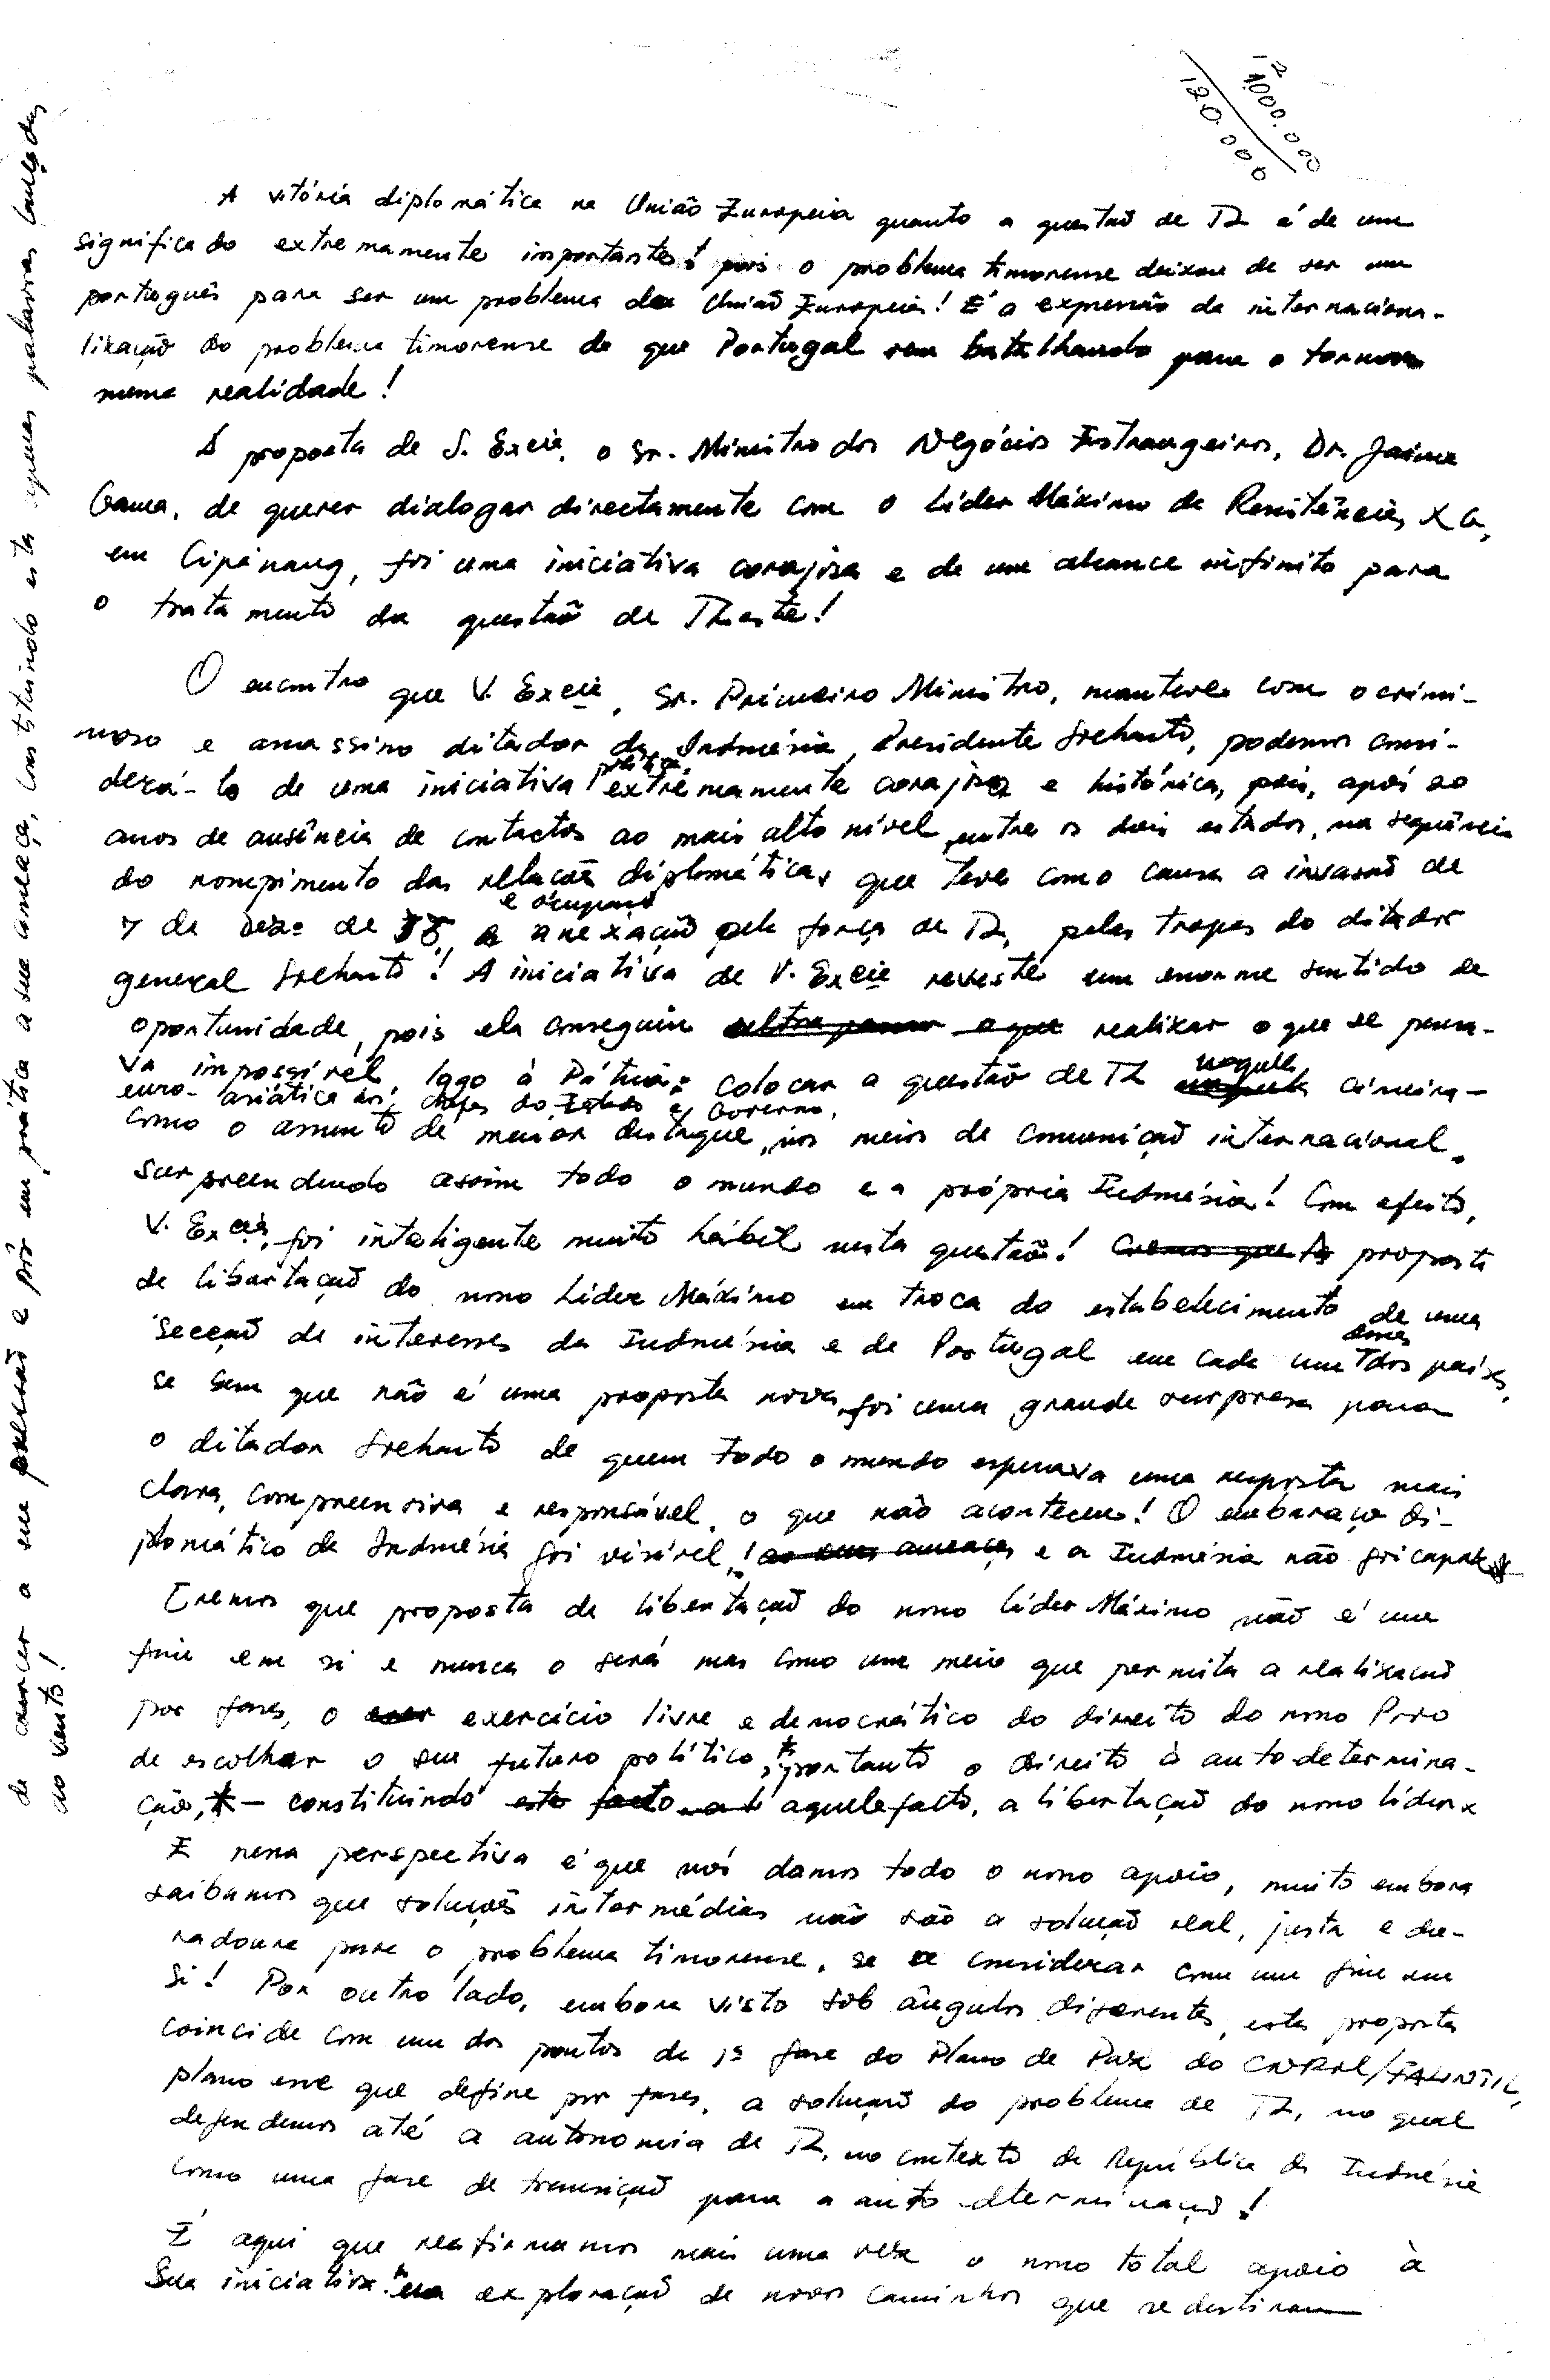 12
1.000.000
120.000
A vitória diplomática na União Europeia quanto a questão de TL é de um
significado extremamente importante! pois o problema timorense deixou de ser um
português para ser um problema da União Europeia! É a expressão da internaciona-
lização do problema timorense de que Portugal vem batalhando para o tornar
numa realidade!
A proposta de S. Excia. o Sr. Ministro dos Negócios Estrangeiros, Dr. Jaime
Gama, de querer dialogar directamente com o Líder Máximo da Resistência, XG,
em Cipinang, foi uma iniciativa corajosa e de um alcance infinito para
o tratamento da questão de TLeste!
O encontro que V. Excia, Sr. Primeiro Ministro, manteve com o crimi-
noso e assassino ditador da Indonésia, Presidente Suharto, podemos consi-
derá-lo de uma iniciativa política extremamente corajosa e histórica, pois, após 20
anos de ausência de contactos ao mais alto nível entre os dois estados, na sequência
do rompimento das relações diplomáticas que teve como causa a invasão de
7 de Dez. de 75, e ocupação e anexação pela força de TL, pelas tropas do ditador
general Suharto! A iniciativa de V. Excia reveste um enorme sentido de
oportunidade, pois ela conseguiu ultrapassar o que realizar o que se pensa-
va impossível, logo à Pátria: colocar a questão de TL naquela cimeira
euro-asiática dos chefes do Estado e Governo,
como o assunto de maior destaque, nos meios de comunicação internacional,
surpreendendo assim todo o mundo e a própria Indonésia! Com efeito,
V. Excia, foi inteligente muito hábil nesta questão! Cremos que A proposta
de libertação do nosso Líder Máximo em troca do estabelecimento de uma
secção de interesses da Indonésia e de Portugal em cada um desses dos países,
se bem que não é uma proposta nova, foi uma grande surpresa para
o ditador Suharto de quem todo o mundo esperava uma resposta mais
clara, compreensiva e responsável, o que não aconteceu! O embaraço di-
plomático da Indonésia foi visível! as suas ameaças e a Indonésia não foi capaz
Cremos que proposta de libertação do nosso Líder Máximo não é um
fim em si e nunca o será mas como um meio que permita a realização
por fases, o exer exercício livre e democrático do direito do nosso Povo
de escolher o seu futuro político, portanto o direito à autodetermina-
ção, - constituindo este facto aquele facto, a libertação do nosso líder
E nessa perspectiva é que nós damos todo o nosso apoio, muito embora
saibamos que soluções intermédias não são a solução real, justa e du-
radoura para o problema timorense, se a considerar como um fim em
si! Por outro lado, embora visto sob ângulos diferentes, esta proposta
coincide com um dos pontos da 1ª fase do Plano de Paz do CNRM/FALINTIL,
plano esse que define por fases, a solução do problema de TL, no qual
defendemos até a autonomia de TL, no contexto da República da Indonésia
como uma fase de transição para a auto determinação!
É aqui que reafirmamos mais uma vez o nosso total apoio à
Sua iniciativa na exploração de novos caminhos que se destinam
de exercer a sua pressão e pôr em prática a sua ameaça, constituindo esta apenas palavras lançadas
ao vento!